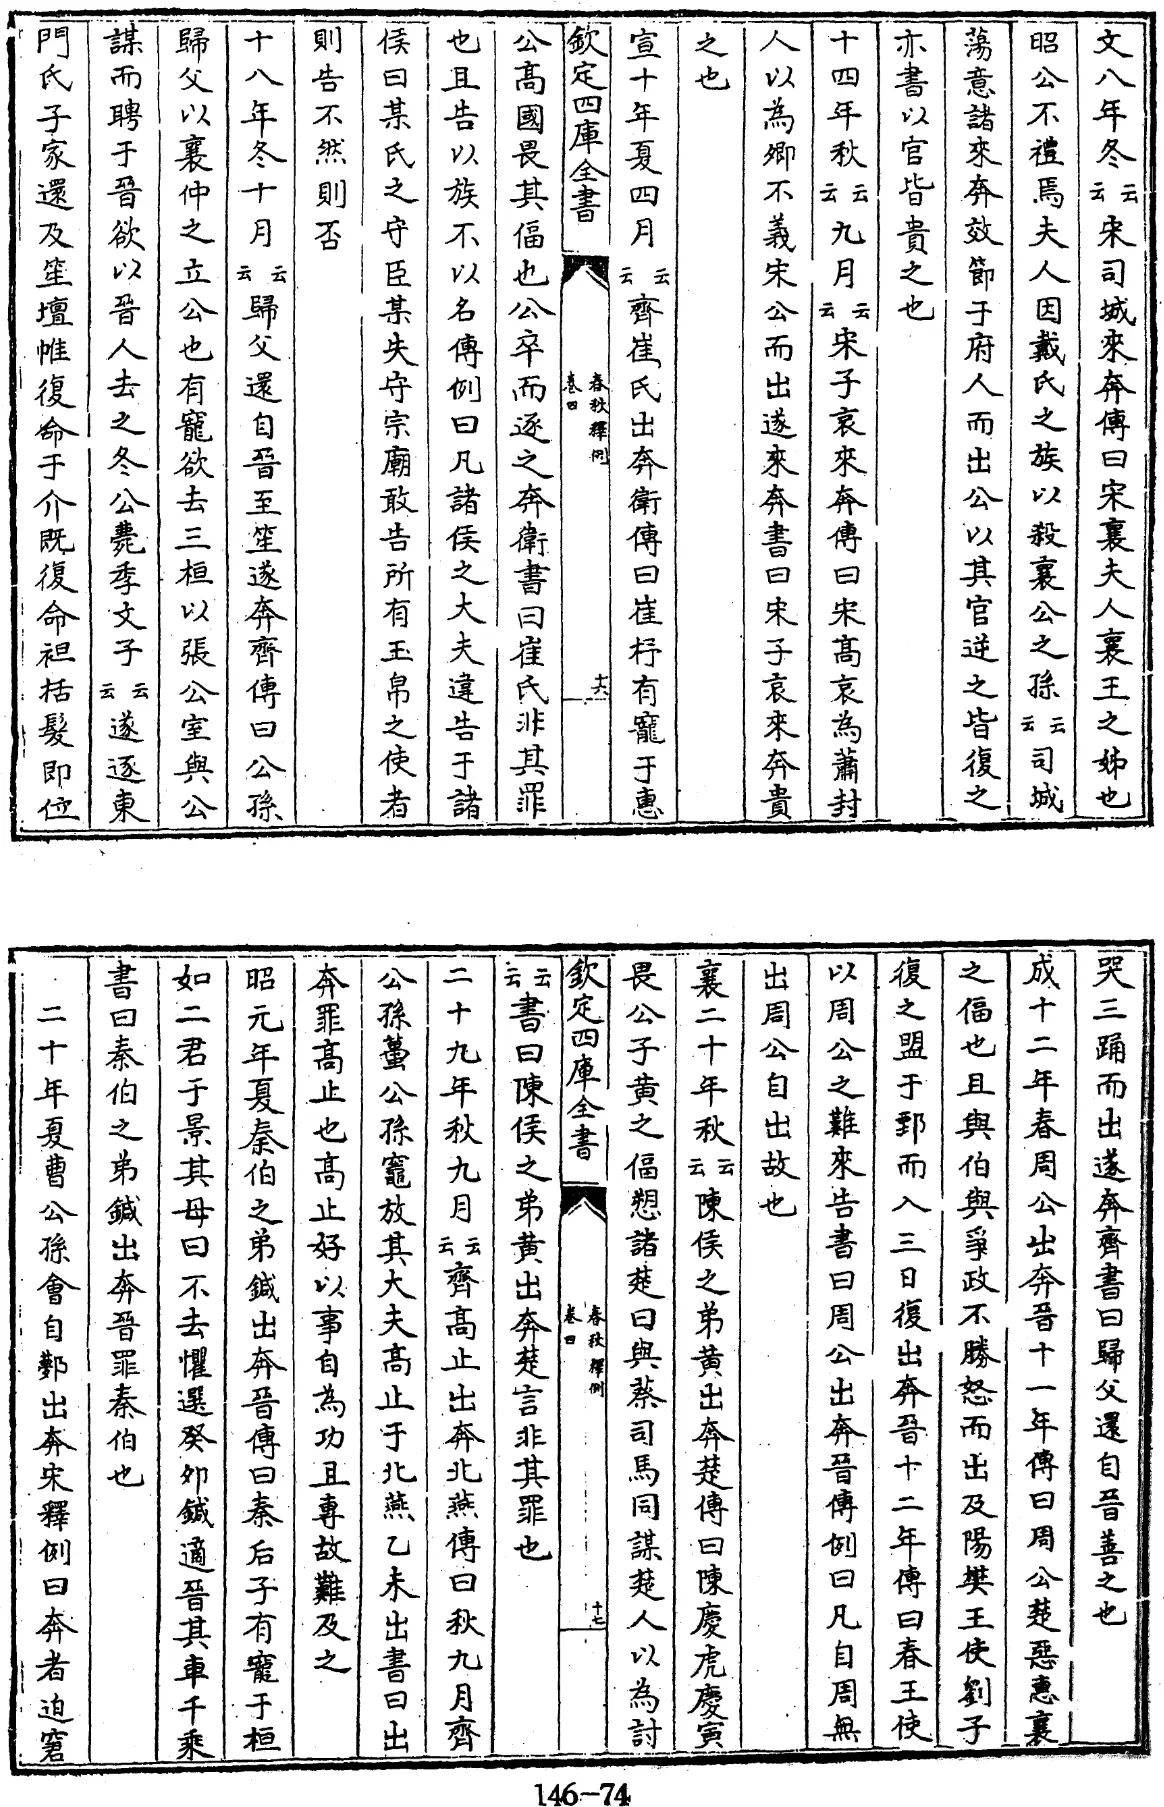 文八年冬云云宋司城來奔傳曰宋襄夫人襄王之姊也
昭公不禮焉夫人因戴氏之族以殺襄公之孫云云司城
蕩意諸來奔效節于府人而出公以其官逆之皆復之
亦書以官皆貴之也
十四年秋云云九月云云宋子哀來奔傳曰宋髙哀為蕭封
人以為卿不義宋公而出遂來奔書曰宋子哀來奔貴
之也
宣十年夏四月云云齊崔氏出奔衛傳曰崔杼有寵于惠
欽定四庫全書
春秋釋例
卷四
十六
公髙國畏其偪也公卒而逐之奔衛書曰崔氏非其罪
也且告以族不以名傳例曰凡諸侯之大夫違告于諸
侯曰某氏之守臣某失守宗廟敢告所有玉帛之使者
則告不然則否
十八年冬十月云云歸父還自晉至笙遂奔齊傳曰公孫
歸父以襄仲之立公也有寵欲去三桓以張公室與公
謀而聘于晉欲以晉人去之冬公薨季文子云云遂逐東
門氏子家還及笙壇帷復命于介既復命袒括髮即位
哭三踊而出遂奔齊書曰歸父還自晉善之也
成十二年春周公出奔晉十一年傳曰周公楚惡惠襄
之偪也且與伯與爭政不勝怒而出及陽樊王使劉子
復之盟于鄄而入三日復出奔晉十二年傳曰春王使
以周公之難來告書曰周公出奔晉傳例曰凡自周無
出周公自出故也
襄二十年秋云云陳侯之弟黄出奔楚傳曰陳慶虎慶寅
畏公子黄之偪愬諸楚曰與蔡司馬同謀楚人以為討
欽定四庫全書
春秋釋例
卷四
十七
云云書曰陳侯之弟黄出奔楚言非其罪也
二十九年秋九月云云齊髙止出奔北燕傳曰秋九月齊
公孫蠆公孫竈放其大夫髙止于北燕乙未出書曰出
奔罪髙止也髙止好以事自為功且專故難及之
昭元年夏秦伯之弟鍼出奔晉傳曰秦后子有寵于桓
如二君于景其母曰不去懼選癸卯鍼適晉其車千乘
書曰秦伯之弟鍼出奔晉罪秦伯也
二十年夏曹公孫會自鄸出奔宋釋例曰奔者迫窘
146-74